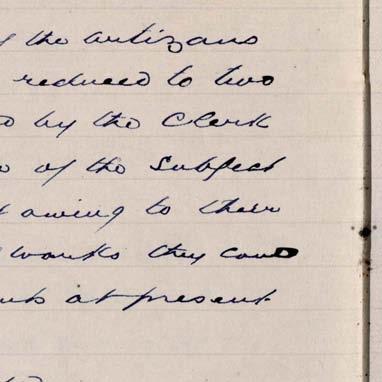 the artizans
reduced to two
by the Clerk
of the Subject
owing to their
works they could
at present